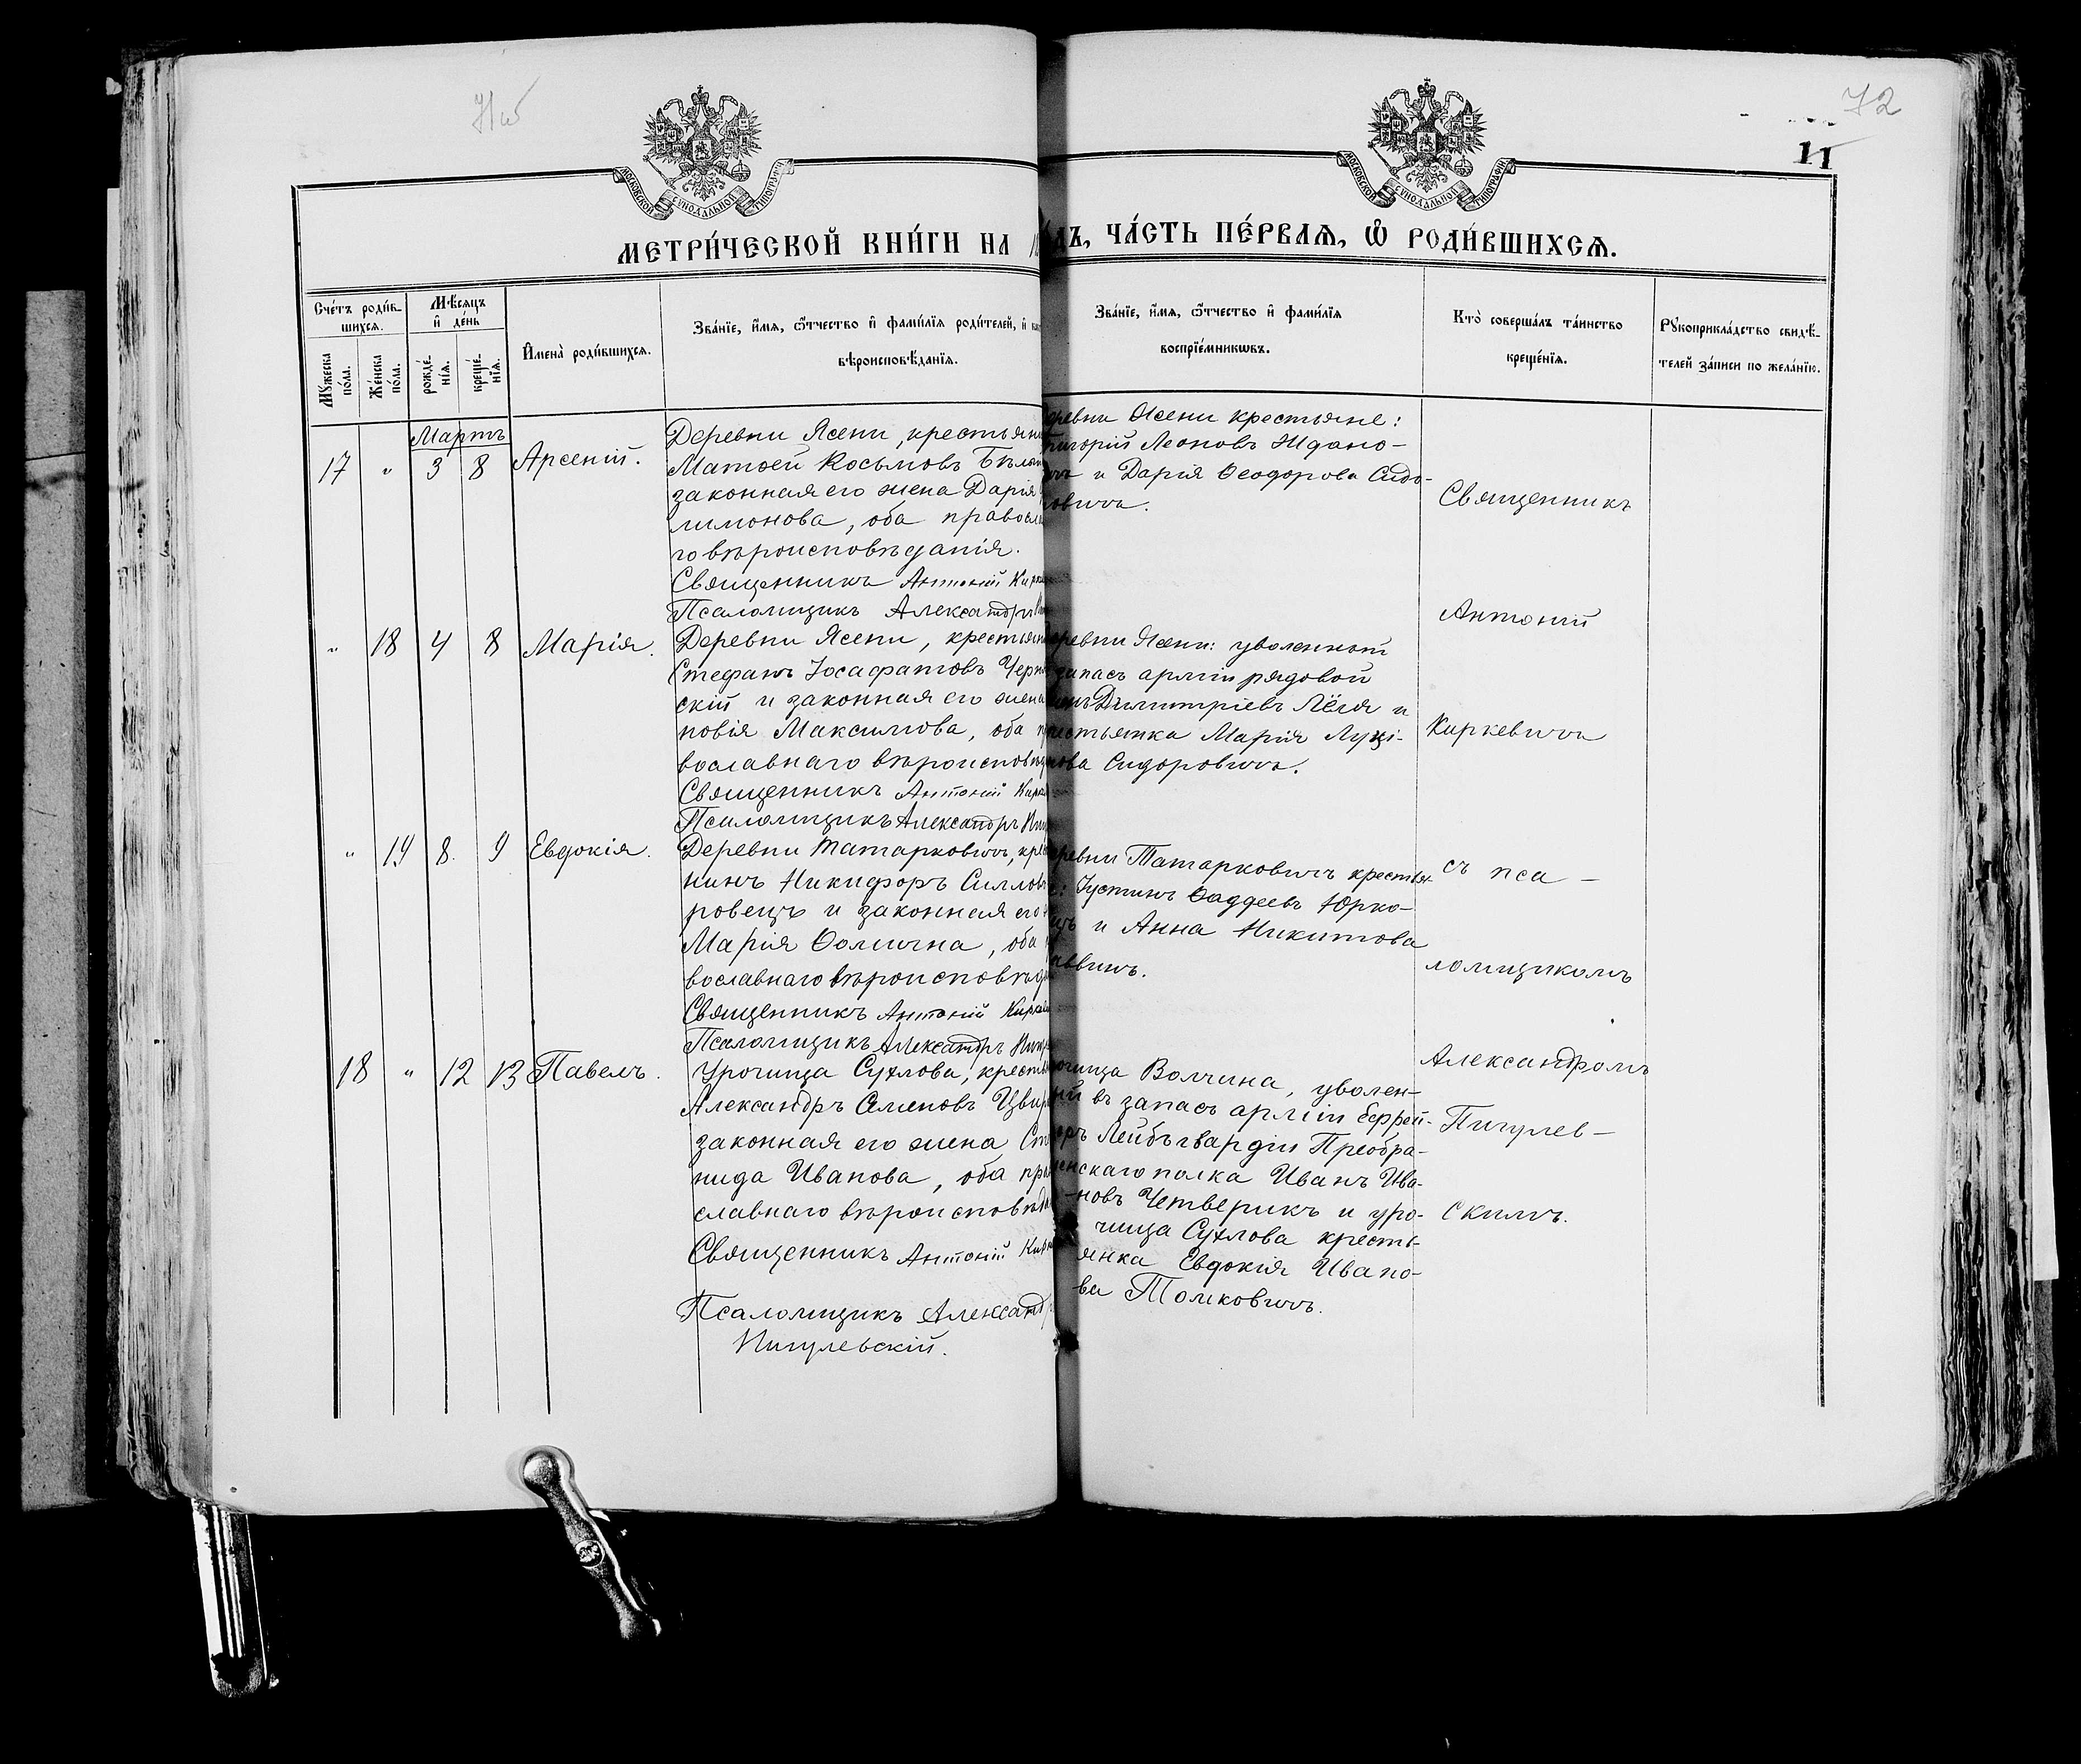 72
11
МОСКОВСКОЙ СѴНОДАЛЬНОЙ ТИПОГРАФІИ
МОСКОВСКОЙ СѴНОДАЛЬНОЙ ТИПОГРАФІИ
МЕТРИ́ЧЕСКОЙ КНИ́ГИ НА
ДЪ, ЧА́СТЬ ПЕ́РВАѦ, Ѽ РОДИ́ВШИХСѦ.
Сче́тъ роди́в-
шихсѧ.
Мѣ́сѧцъ
и҆ де́нь
Мꙋ́жеска
по́ла.
Же́нска
по́ла.
рожде́-
нїѧ.
креще́-
нїѧ.
И҆мена̀ роди́вшихсѧ.
Зва́нїе, и҆́мѧ, ѻ҆́тчество и҆ фами́лїѧ роди́телей, и҆
вѣроисповѣ́данїѧ.
Зва́нїе, и҆́мѧ, ѻ҆́тчество и҆ фами́лїѧ
воспрїе́мникѡвъ.
Кто̀ соверша́лъ та́инство
креще́нїѧ.
Рꙋкоприкла́дство свидѣ́-
телей за́писи по жела́нїю.
Мартъ
17 " 3 8 Арсеній.
Деревни Ясени, крестьяни
Матѳей Косьмовъ Бѣло
законная его жена Дарія
лимонова, оба правосла
го вѣроисповѣданія.
Священникъ Антоній Кирк
Псаломщикъ Александръ
ревни Ясени крестьяне:
ригорій Леоновъ Ждано-
ичъ и Дарія Ѳеодорова Сидо-
овичъ.
" 18 4 8 Марія.
Деревни Ясени, крестьян
Стефанъ Іосафатовъ Черн
скій и законная его жена
повія Максимова, оба пр
вославнаго вѣроисповѣд
Священникъ Антоній Кирк
Псаломщикъ Александръ Пи
ревни Ясени: уволенный
запасъ арміи рядовой
Димитріевъ Лёгя и
рестьянка Марія Луці-
нова Сидоровичъ.
" 19 8. 9 Евдокія.
Деревни Татарковичъ, кре
нинъ Никифоръ Силловъ
ровецъ и законная его
Марія Ѳомична, оба
вославнаго вѣроисповѣд
Священникъ Антоній Кирке
Псаломщикъ Александръ Пиг
ревни Татарковичъ крестья-
Іустинъ Ѳаддеевъ Юрко-
ичъ и Анна Никитова
ввичъ.
18 " 12 13 Павелъ.
Урочища Сухлова, кресть
Александръ Семеновъ Цви
законная его жена Сте
нида Иванова, оба пра
славнаго вѣроисповѣда
Священникъ Антоній Кирк
Псаломщикъ Александр
Пигулевскій.
очища Волчина, уволен-
ый въ запасъ арміи Ефрей-
оръ Лейбъ гвардіи Преобра-
женскаго полка Иванъ Ива-
-новъ Четверикъ и уро-
чища Сухлова кресть-
янка Евдокія Ивано-
ва Толковичъ.
Священникъ
Антоній
Киркевичъ
съ пса-
ломщикомъ
Александромъ
Пигулев-
скимъ.